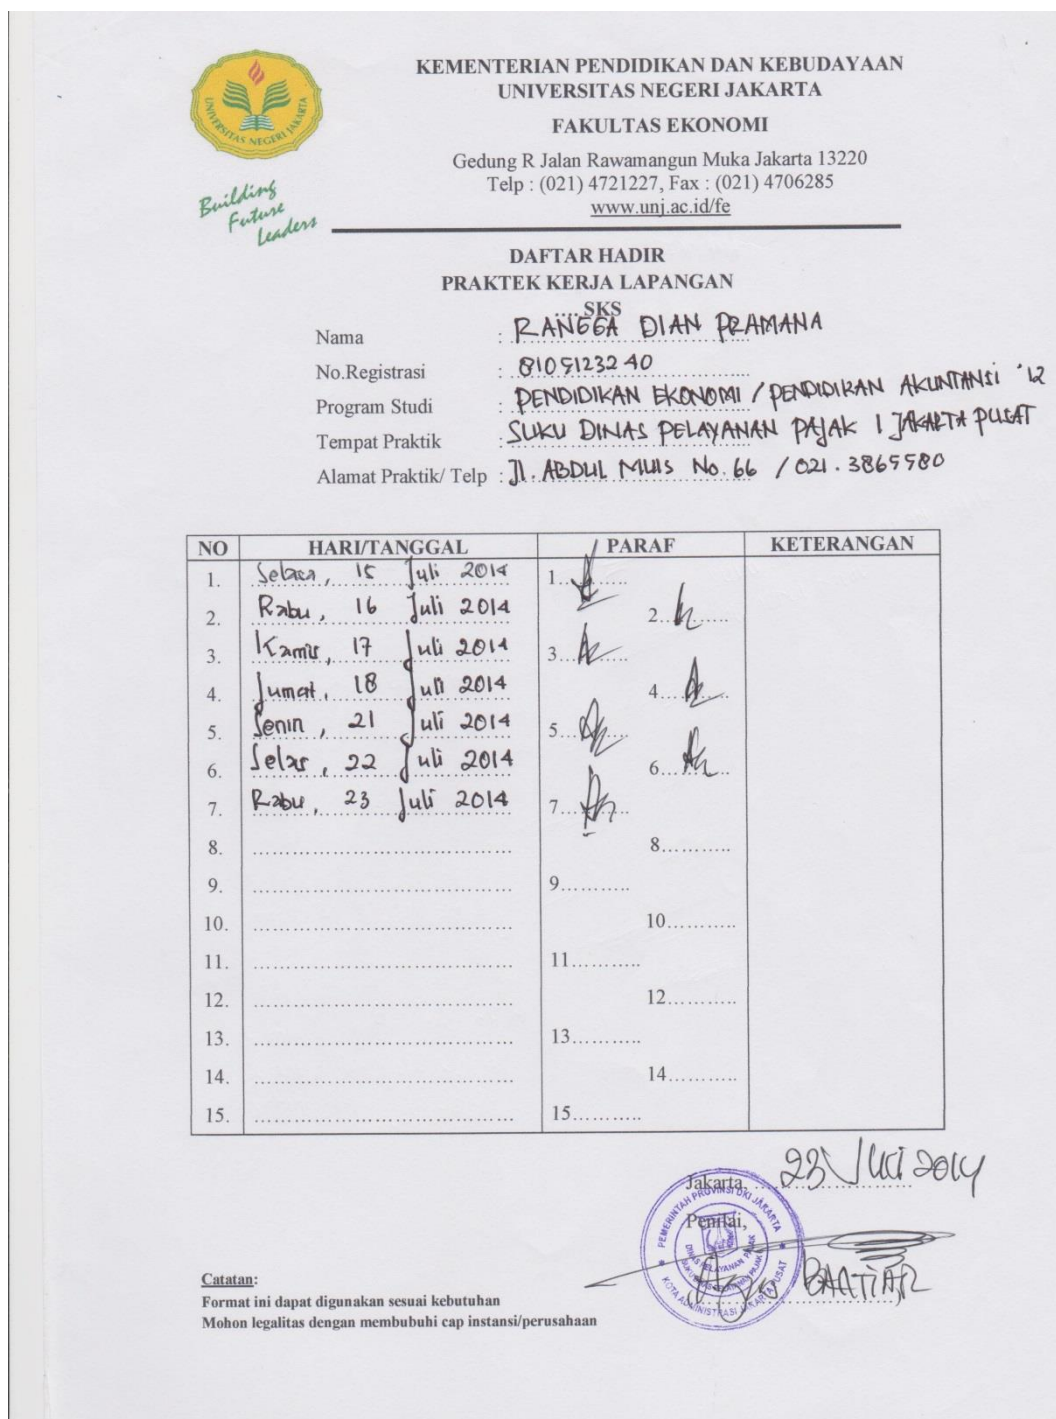 UNIVERSITAS NEGERI JAKARTA
Building
Future
Leaders
KEMENTERIAN PENDIDIKAN DAN KEBUDAYAAN
UNIVERSITAS NEGERI JAKARTA
FAKULTAS EKONOMI
Gedung R Jalan Rawamangun Muka Jakarta 13220
Telp : (021) 4721227, Fax : (021) 4706285
www.unj.ac.id/fe
DAFTAR HADIR
PRAKTEK KERJA LAPANGAN
.... SKS
Nama : RANGGA DIAN PRAMANA
No.Registrasi : 8105123240
Program Studi : PENDIDIKAN EKONOMI / PENDIDIKAN AKUNTANSI '12
Tempat Praktik : SUKU DINAS PELAYANAN PAJAK 1 JAKARTA PUSAT
Alamat Praktik/ Telp : Jl. ABDUL MUIS No. 66 / 021. 3865580
NO HARI/TANGGAL PARAF KETERANGAN
1. Selasa, 15 Juli 2014 1...........
2. Rabu, 16 Juli 2014 2...........
3. Kamis, 17 Juli 2014 3...........
4. Jumat, 18 Juli 2014 4...........
5. Senin, 21 Juli 2014 5...........
6. Selas, 22 Juli 2014 6...........
7. Rabu, 23 Juli 2014 7...........
8. ........................................ 8...........
9. ........................................ 9...........
10. ........................................ 10...........
11. ........................................ 11...........
12. ........................................ 12...........
13. ........................................ 13...........
14. ........................................ 14...........
15. ........................................ 15...........
Jakarta, 23 Juli 2014
Penilai,
PEMERINTAH PROVINSI DKI JAKARTA
DINAS PELAYANAN PAJAK
KOTA ADMINISTRASI JAKARTA PUSAT
BAHTIAR
Catatan:
Format ini dapat digunakan sesuai kebutuhan
Mohon legalitas dengan membubuhi cap instansi/perusahaan